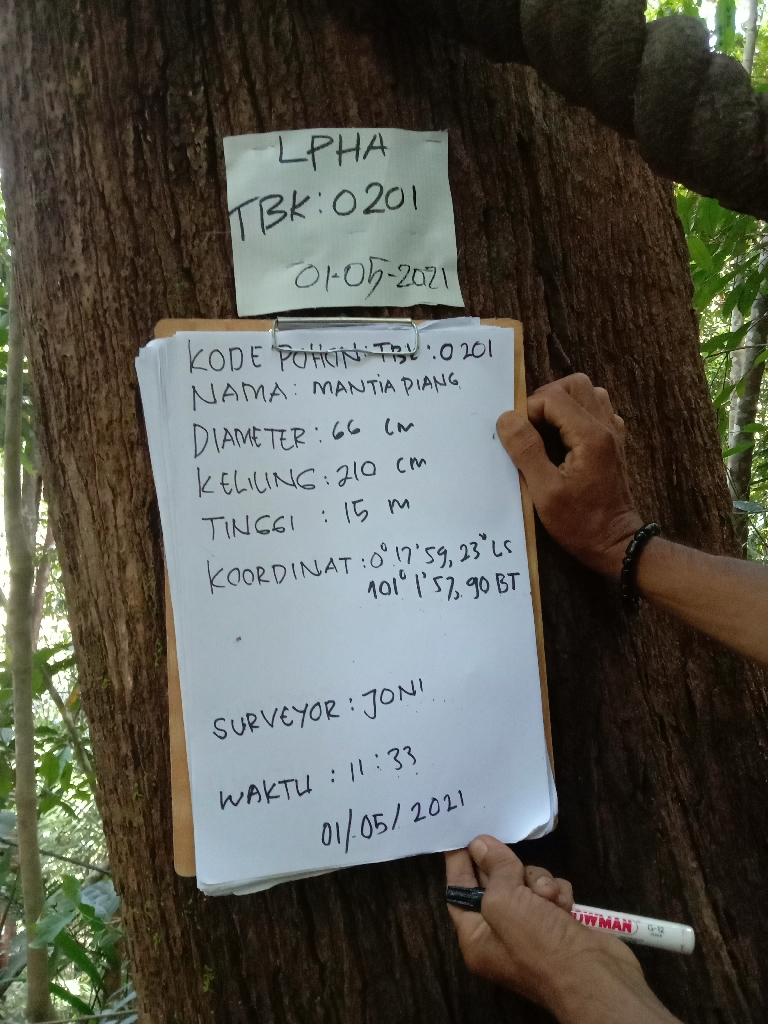 LPHA
TBK: 0201
01-05-2021
KODE POHON: TBK: 0201
NAMA: MANTIA PIANG
DIAMETER: 66 cm
KELILING: 210 cm
TINGGI : 15 m
KOORDINAT: 0° 17' 59, 23" LS
101° 1' 57, 90 BT
SURVEYOR: JONI
WAKTU : 11:33
01/05/2021
SNOWMAN G-12